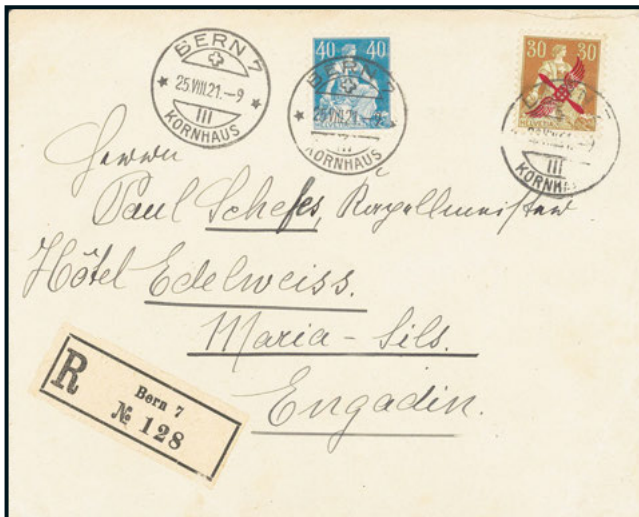 BERN 7
* 25.VIII.21.–9 *
III
KORNHAUS
40 40
BERN 7
25.VIII.21.–9
III
KORNHAUS
30 30
HELVETIA
III
KORNHA
Herrn
Paul Schefes, Kapellmeister
Hôtel Edelweiss.
Maria - Sils.
Engadin.
R
Bern 7
№ 128